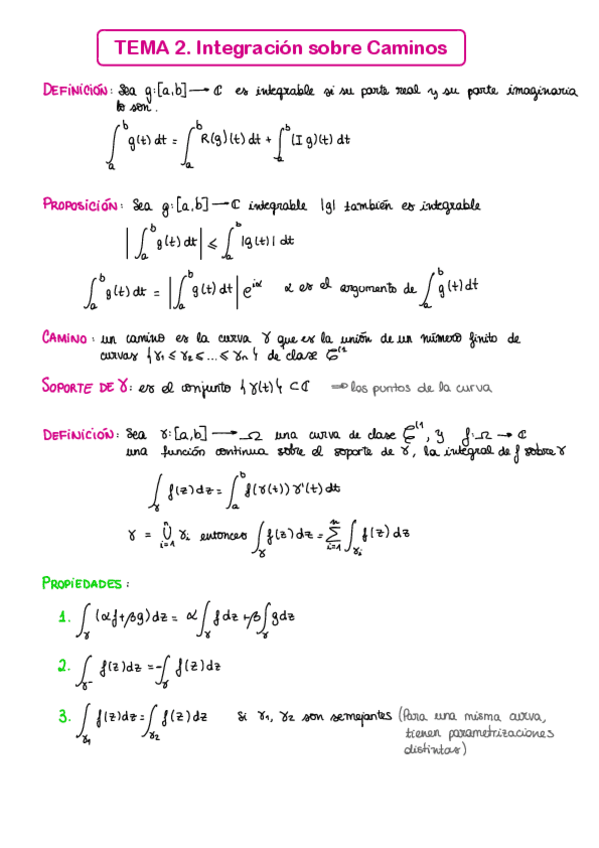 TEMA 2. Integración sobre Caminos
DEFINICIÓN: Sea g:[a,b]⟶ℂ es integrable si su parte real y su parte imaginaria
lo son.
∫_a^b g(t)dt = ∫_a^b R(g)(t)dt + ∫_a^b (I g)(t)dt
PROPOSICIÓN: Sea g:[a,b]⟶ℂ integrable |g| también es integrable
|∫_a^b g(t)dt| ≤ ∫_a^b |g(t)| dt
∫_a^b g(t)dt = |∫_a^b g(t)dt| e^{iα} α es el argumento de ∫_a^b g(t)dt
CAMINO: un camino es la curva γ que es la unión de un número finito de
curvas {γ1 ≤ γ2 ≤ ... ≤ γn} de clase C^(1
SOPORTE DE γ: es el conjunto {γ(t)} ⊂ ℂ ⇒ los puntos de la curva
DEFINICIÓN: Sea γ:[a,b]⟶Ω una curva de clase C^(1, y f:Ω→ℂ
una función continua sobre el soporte de γ, la integral de f sobre γ
∫_γ f(z)dz = ∫_a^b f(γ(t))γ'(t)dt
γ = ∪_{i=1}^n γi entonces ∫_γ f(z)dz = Σ_{i=1}^n ∫_{γi} f(z)dz
PROPIEDADES:
1. ∫_γ (αf+βg)dz = α∫_γ f dz + β∫_γ gdz
2. ∫_{γ^-} f(z)dz = -∫_γ f(z)dz
3. ∫_{γ1} f(z)dz = ∫_{γ2} f(z)dz si γ1, γ2 son semejantes (Para una misma curva,
tienen parametrizaciones
distintas)